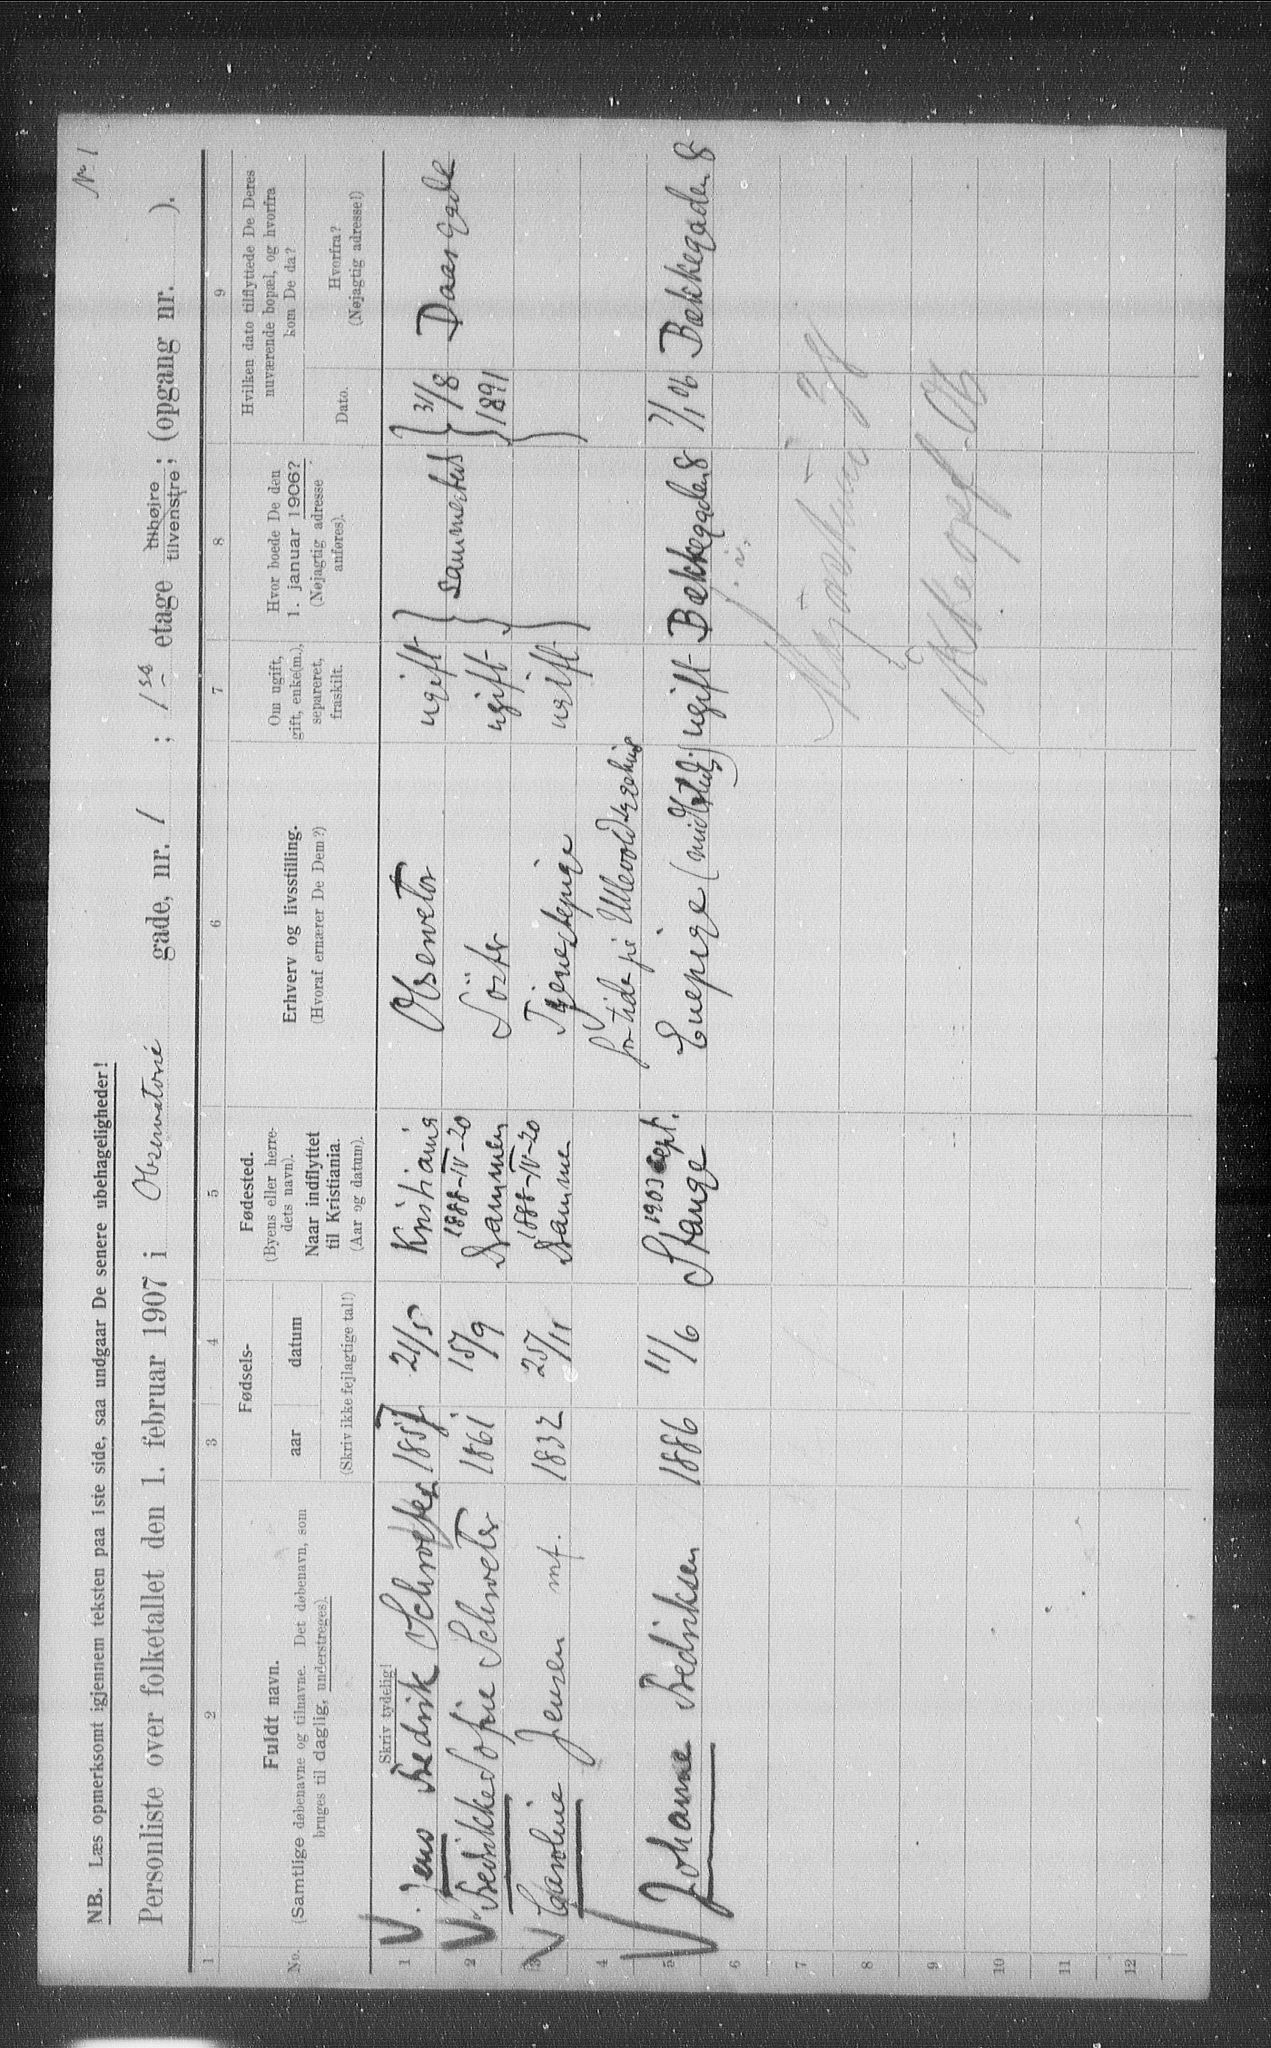 No 1
NB. Læs opmerksomt igjennem teksten paa 1ste side, saa undgaar De senere ubehageligheder!
Personliste over folketallet den 1. februar 1907 i Observatorie gade, nr. 1 ; 1ste etage tilhøjre tilvenstre; (opgang nr. ).
1 2 3 4 5 6 7 8 9
No.
Fuldt navn.
(Samtlige døbenavne og tilnavne. Det døbenavn, som
bruges til daglig, understreges).
Fødsels-
aar datum
(Skriv ikke fejlagtige tal!)
Fødested.
(Byens eller herre-
dets navn).
Naar indflyttet
til Kristiania.
(Aar og datum).
Erhverv og livsstilling.
(Hvoraf ernærer De Dem?)
Om ugift,
gift, enke(m.),
separeret,
fraskilt.
Hvor boede De den
1. januar 1906?
(Nøjagtig adresse
anføres).
Hvilken dato tilflyttede De Deres
nuværende bopæl, og hvorfra
kom De da?
Dato.
Hvorfra?
(Nøjagtig adresse!)
Skriv tydelig!
1 Jens Fredrik Schroeter 1857 21/5 Kristiania Observator ugift
1888-IV-20
2 Fredrikke Sofie Schroeter 1861 15/9 Drammen Söster ugift sammested 31/8 1891 Daas Gade
1888-IV-20
3 Caroline Jensen mf. 1832 25/11 Drammen Tjenestepige ugift
4 for tide på Ullevold sygehus
1903 sept.
5 Johanne Fredriksen 1886 11/6 Stange Enepige (midlertid.) ugift Bækkegaden 8 7/1 06 Bækkegaden 8
6
7
8
9 Ikke opf. 06
10
11
12